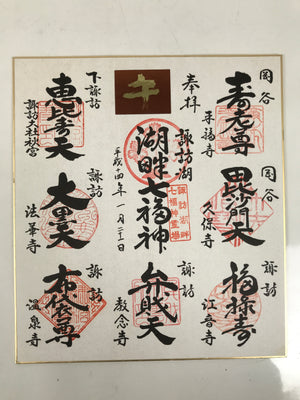 岡谷
寿老尊
末福寺
岡谷
毘沙門天
久保寺
諏訪
福禄寿
江音寺
奉拝
諏訪湖
湖畔七福神
平成十四年一月二十一日
諏訪湖畔
七福神霊場
諏訪
弁財天
教念寺
下諏訪
恵比寿天
諏訪大社秋宮
諏訪
大黒天
法華寺
諏訪
布袋尊
温泉寺